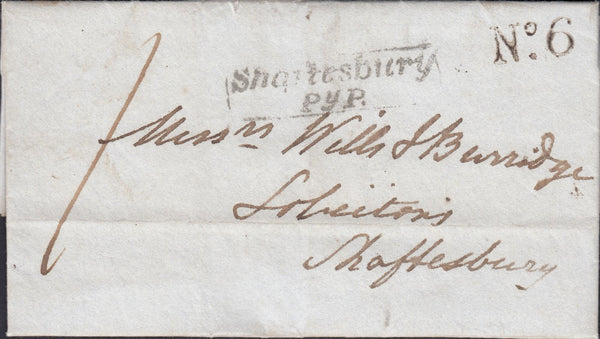 No. 6
Shaftesbury
Py P.
1
Messrs Wills & Burridge
Solicitors
Shaftesbury